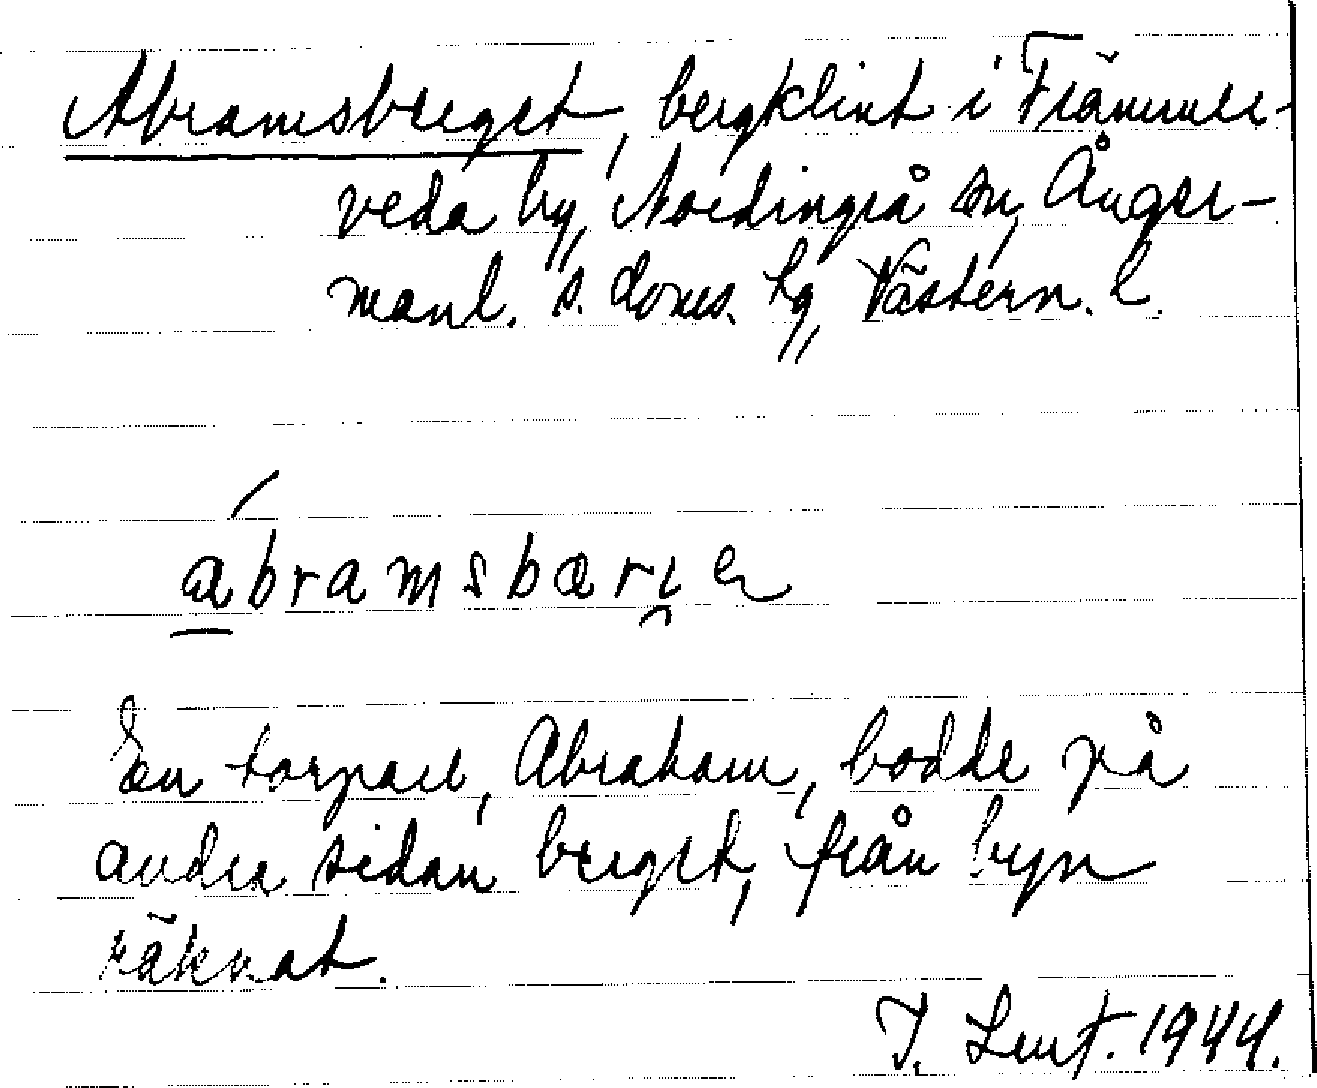 Abramsberget, bergklint i Främmer-
veda by, Nordingrå sn, Ånger-
manl. s. doms. hg, Västern. l.
abramsbæri̯e
En torpare, Abraham, bodde på
andra sidan berget, från byn
räknat.
J. 1944.